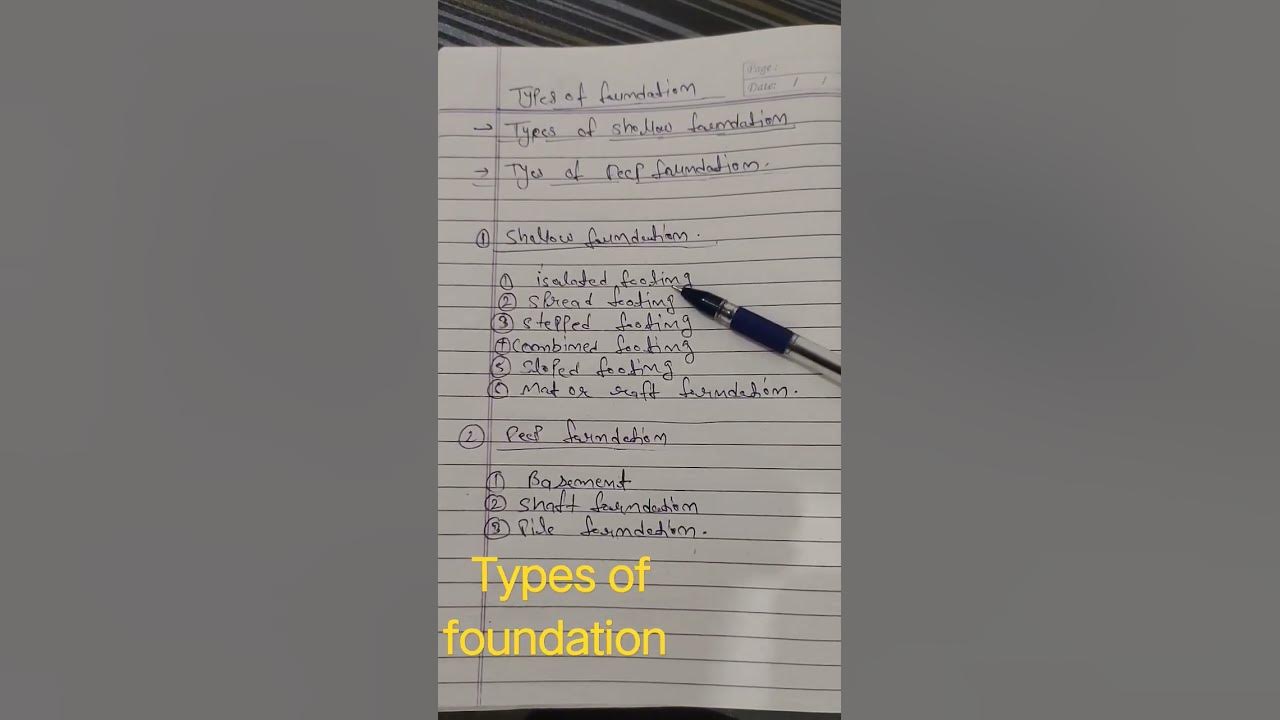 Page:
Date: / /
Types of foundation
→ Types of shallow foundation
→ Tyes of Deep foundation.
① Shallow foundation.
① isolated footing
② spread footing
③ stepped footing
④ combined footing
⑤ sloped footing
⑥ Mat or raft foundation.
② Deep foundation
① Basement
② shaft foundation
③ Pile foundation.
Types of
foundation